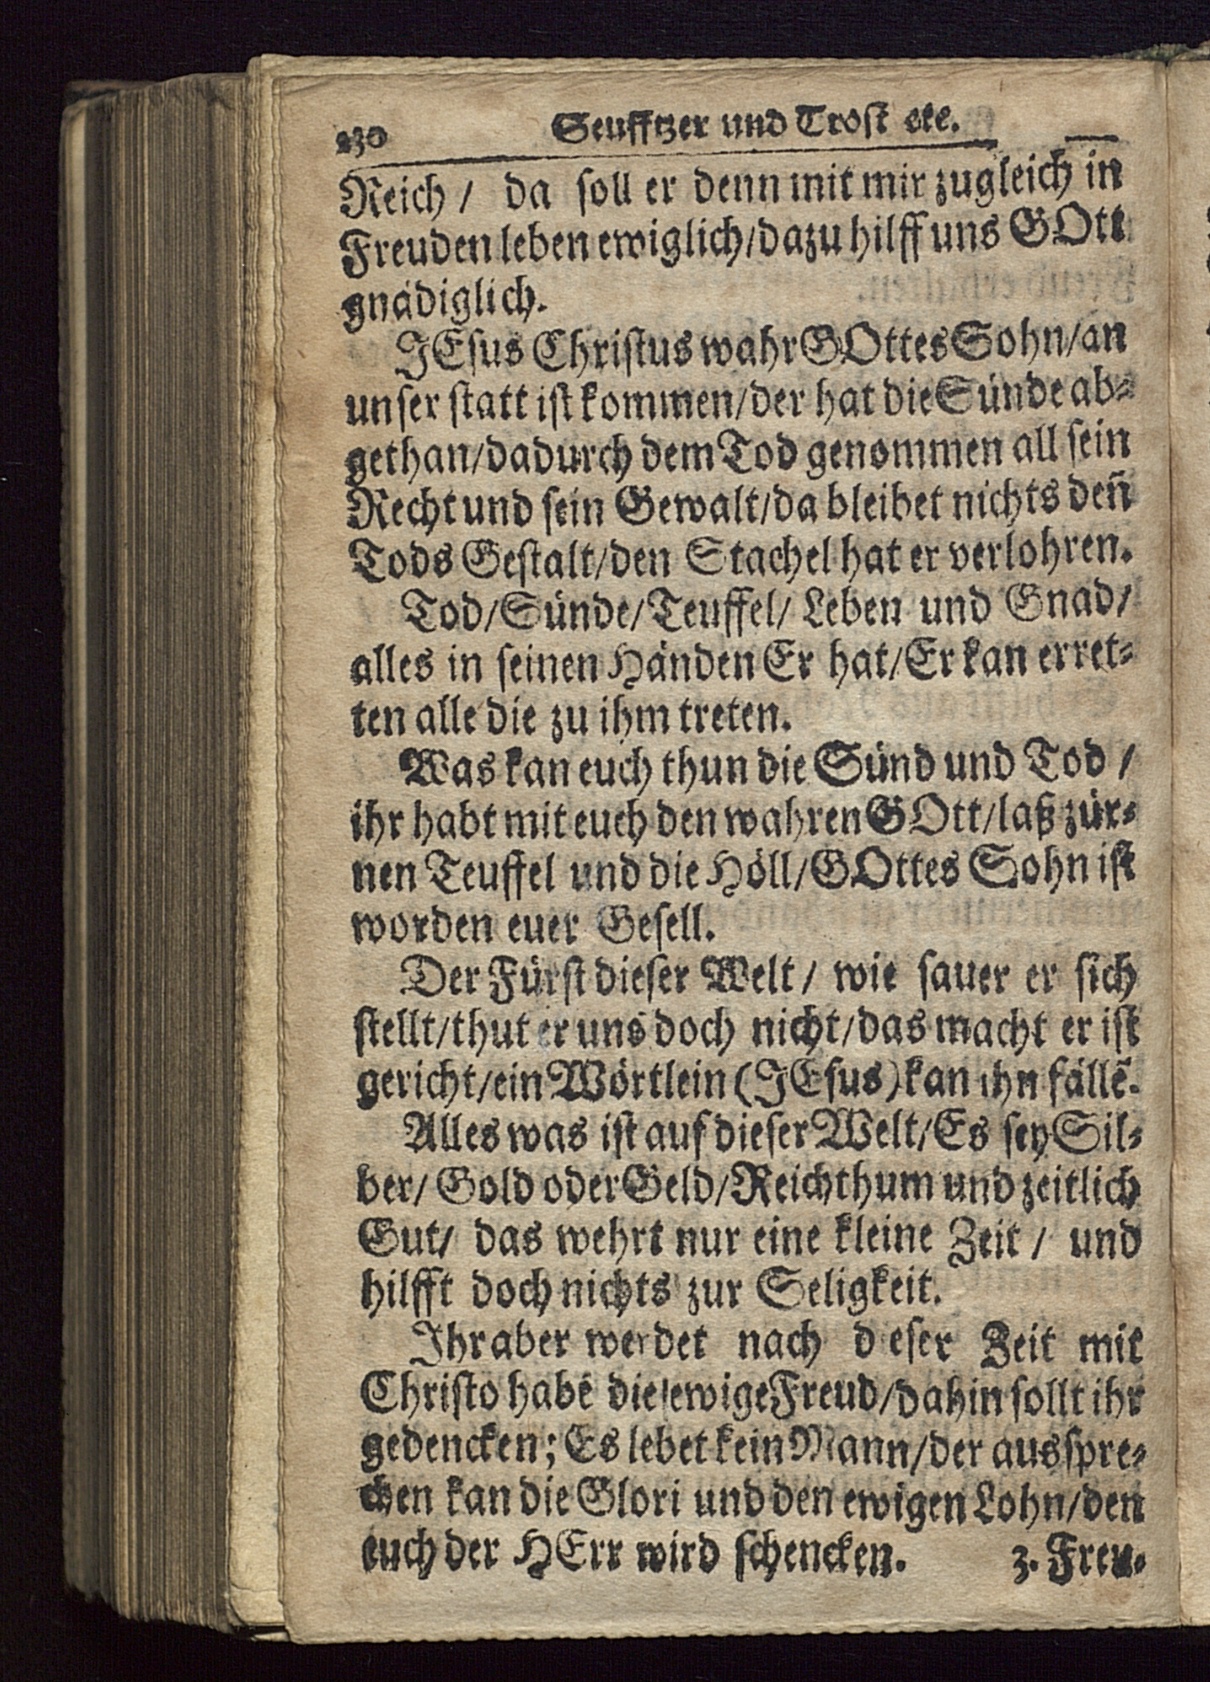 230 Seufftzer und Trost etc.
Reich / da soll er denn mit mir zugleich in
Freuden leben ewiglich/dazu hilff uns GOtt
gnädiglich.
JEsus Christus wahr GOttes Sohn/an
unser statt ist kommen/der hat die Sünde ab-
gethan/dadurch dem Tod genommen all sein
Recht und sein Gewalt/da bleibet nichts deñ
Tods Gestalt/den Stachel hat er verlohren.
Tod/Sünde/Teuffel/ Leben und Gnad/
alles in seinen Händen Er hat/Er kan erret-
ten alle die zu ihm treten.
Was kan euch thun die Sünd und Tod /
ihr habt mit euch den wahren GOtt/laß zür-
nen Teuffel und die Höll/GOttes Sohn ist
worden euer Gesell.
Der Fürst dieser Welt / wie sauer er sich
stellt/thut er uns doch nicht/das macht er ist
gericht/ein Wörtlein (JEsus) kan ihn fällē.
Alles was ist auf dieser Welt/Es sey Sil-
ber/ Gold oder Geld/Reichthum und zeitlich
Gut/ das wehrt nur eine kleine Zeit / und
hilfft doch nichts zur Seligkeit.
Ihr aber werdet nach dieser Zeit mit
Christo habē die ewige Freud/dahin sollt ihr
gedencken; Es lebet kein Mann/der ausspre-
chen kan die Glori und den ewigen Lohn/den
euch der HErr wird schencken. 3. Freu-